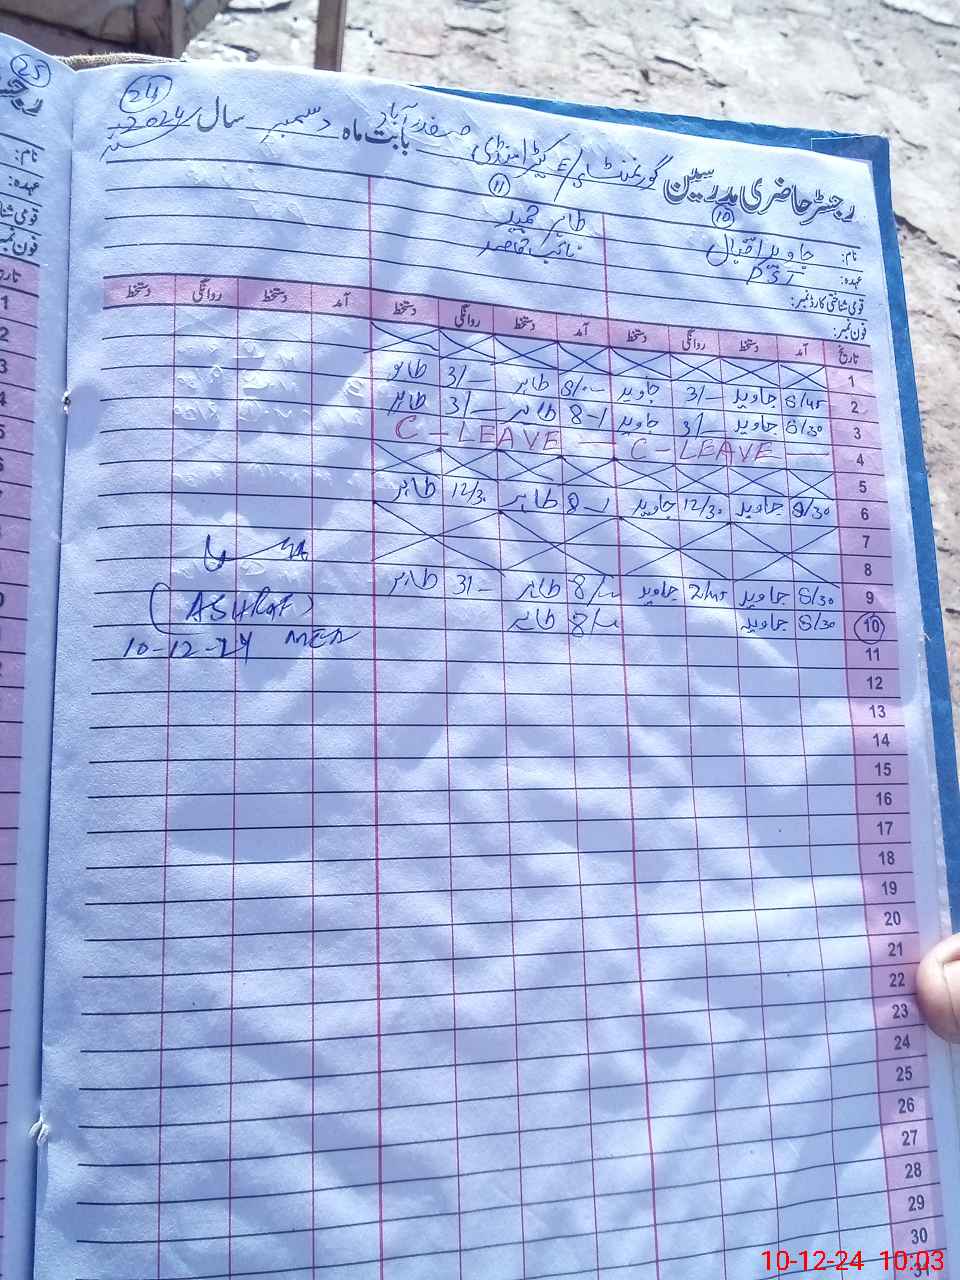 24
رجسٹر حاضری مدرسین گورنمنٹ صفدر آباد بابت ماہ دسمبر سال 2024
10 11
نام: جاوید اقبال طاہر حمید
عہدہ: PST نائب قاصد
قومی شناختی کارڈ نمبر:
فون نمبر:
تاریخ آمد دستخط روانگی دستخط آمد دستخط روانگی دستخط آمد دستخط روانگی دستخط
1
2 8/45 جاوید 3/- جاوید طاہر 3/- طاہر
3 8/30 جاوید 3/- جاوید 8-1 طاہر 3/- طاہر
4 C-LEAVE C-LEAVE
5
6 8/30 جاوید 12/30 جاوید 8-1 طاہر 12/30 طاہر
7
8
9 8/30 جاوید 2/45 جاوید طاہر 3/- طاہر
10 8/30 جاوید طاہر
(ASHRAF)
10-12-24 MEA
11
12
13
14
15
16
17
18
19
20
21
22
23
24
25
26
27
28
29
30
31
25
نام:
عہدہ:
1
2
3
10-12-24 10:03